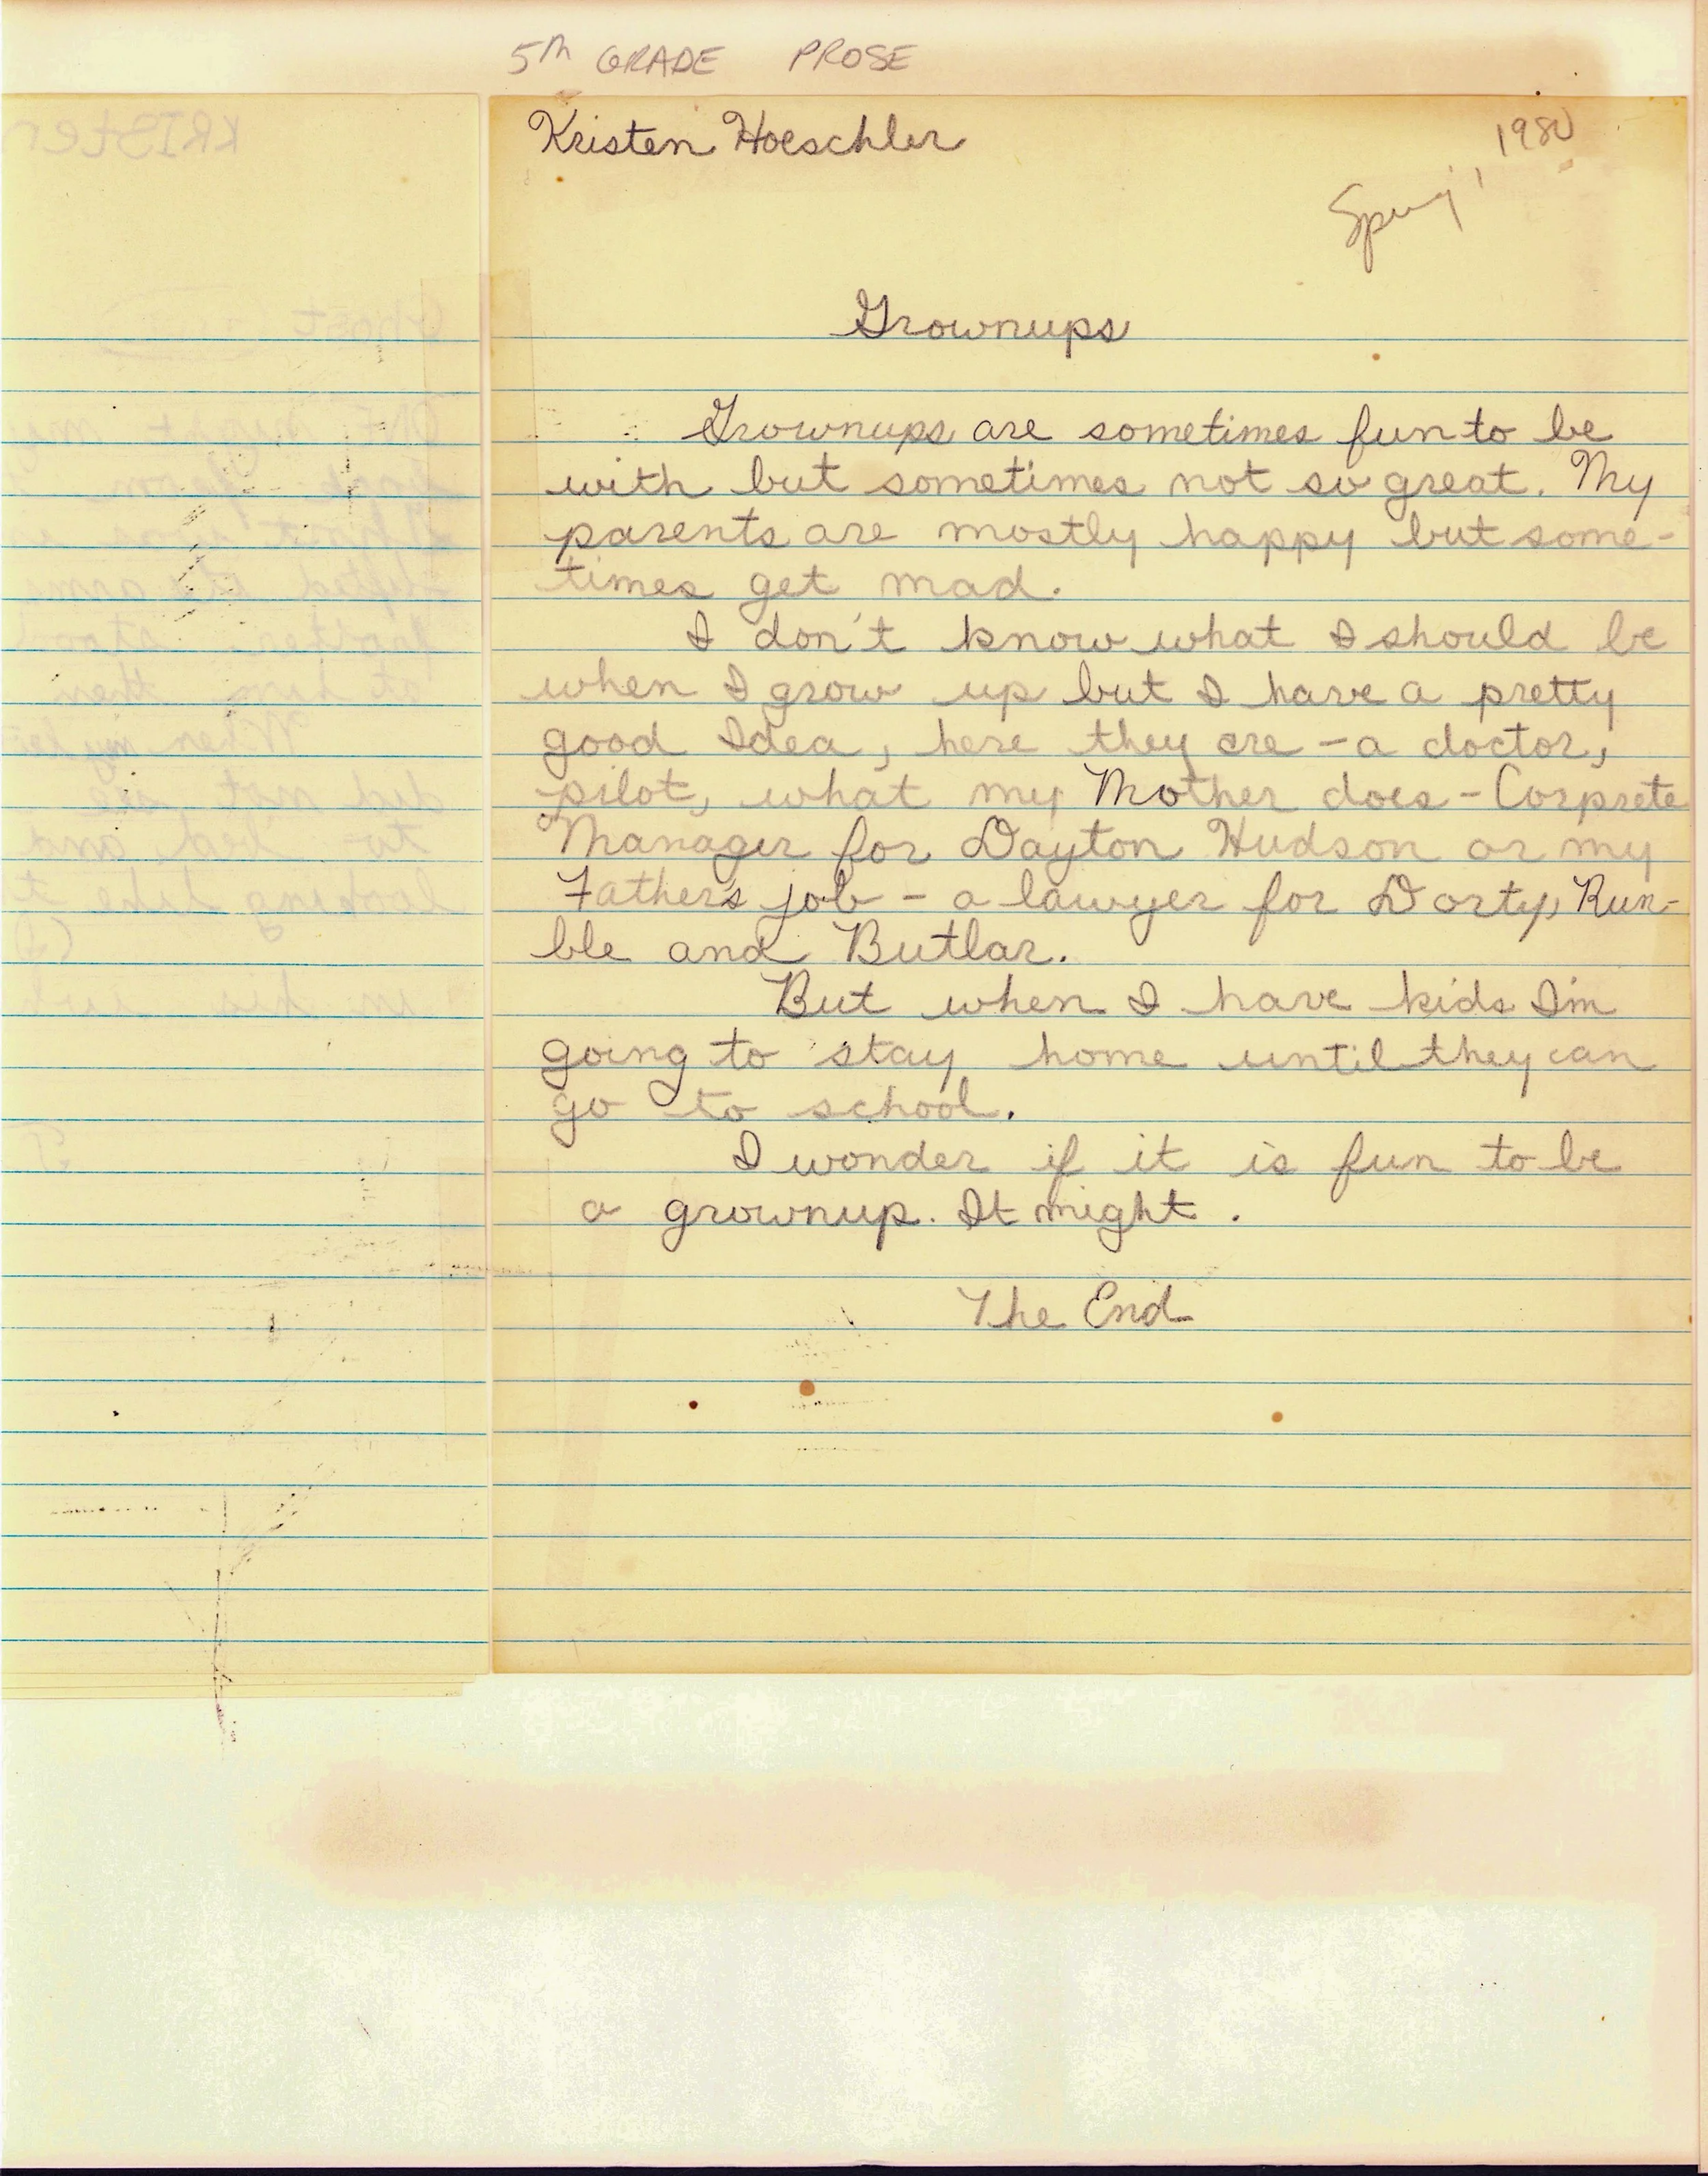 5th GRADE PROSE
Kristen Hoeschler
Spring, 1980
Grownups
Grownups are sometimes fun to be
with but sometimes not so great. My
parents are mostly happy but some-
times get mad.
I don't know what I should be
when I grow up but I have a pretty
good Idea, here they are - a doctor,
pilot, what my Mother does - Corprete
Manager for Dayton Hudson or my
Father's job - a lawyer for Dorty, Run-
ble and Butlar.
But when I have kids I'm
going to stay home until they can
go to school.
I wonder if it is fun to be
a grownup. It might.
The End
KRISten
Ghost